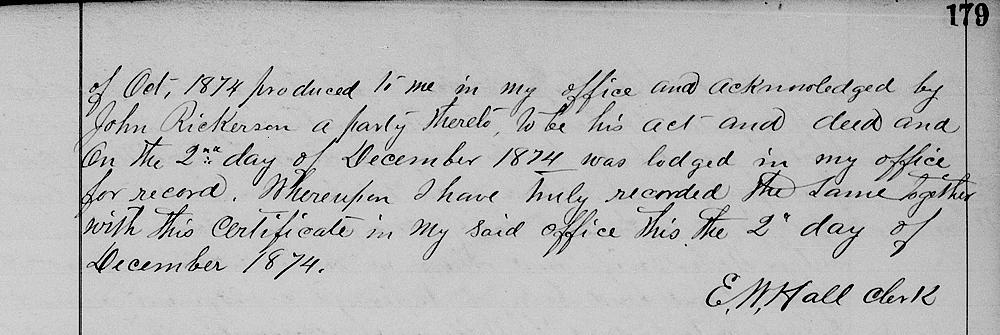 179
of Oct, 1874 produced to me in my office and acknowledged by
John Rickerson a party thereto, to be his act and deed and
On the 2nd day of December 1874 was lodged in my office
for record. Whereupon I have truly recorded the same together
with this certificate in my said office this the 2" day of
December 1874.
E. W. Hall Clerk